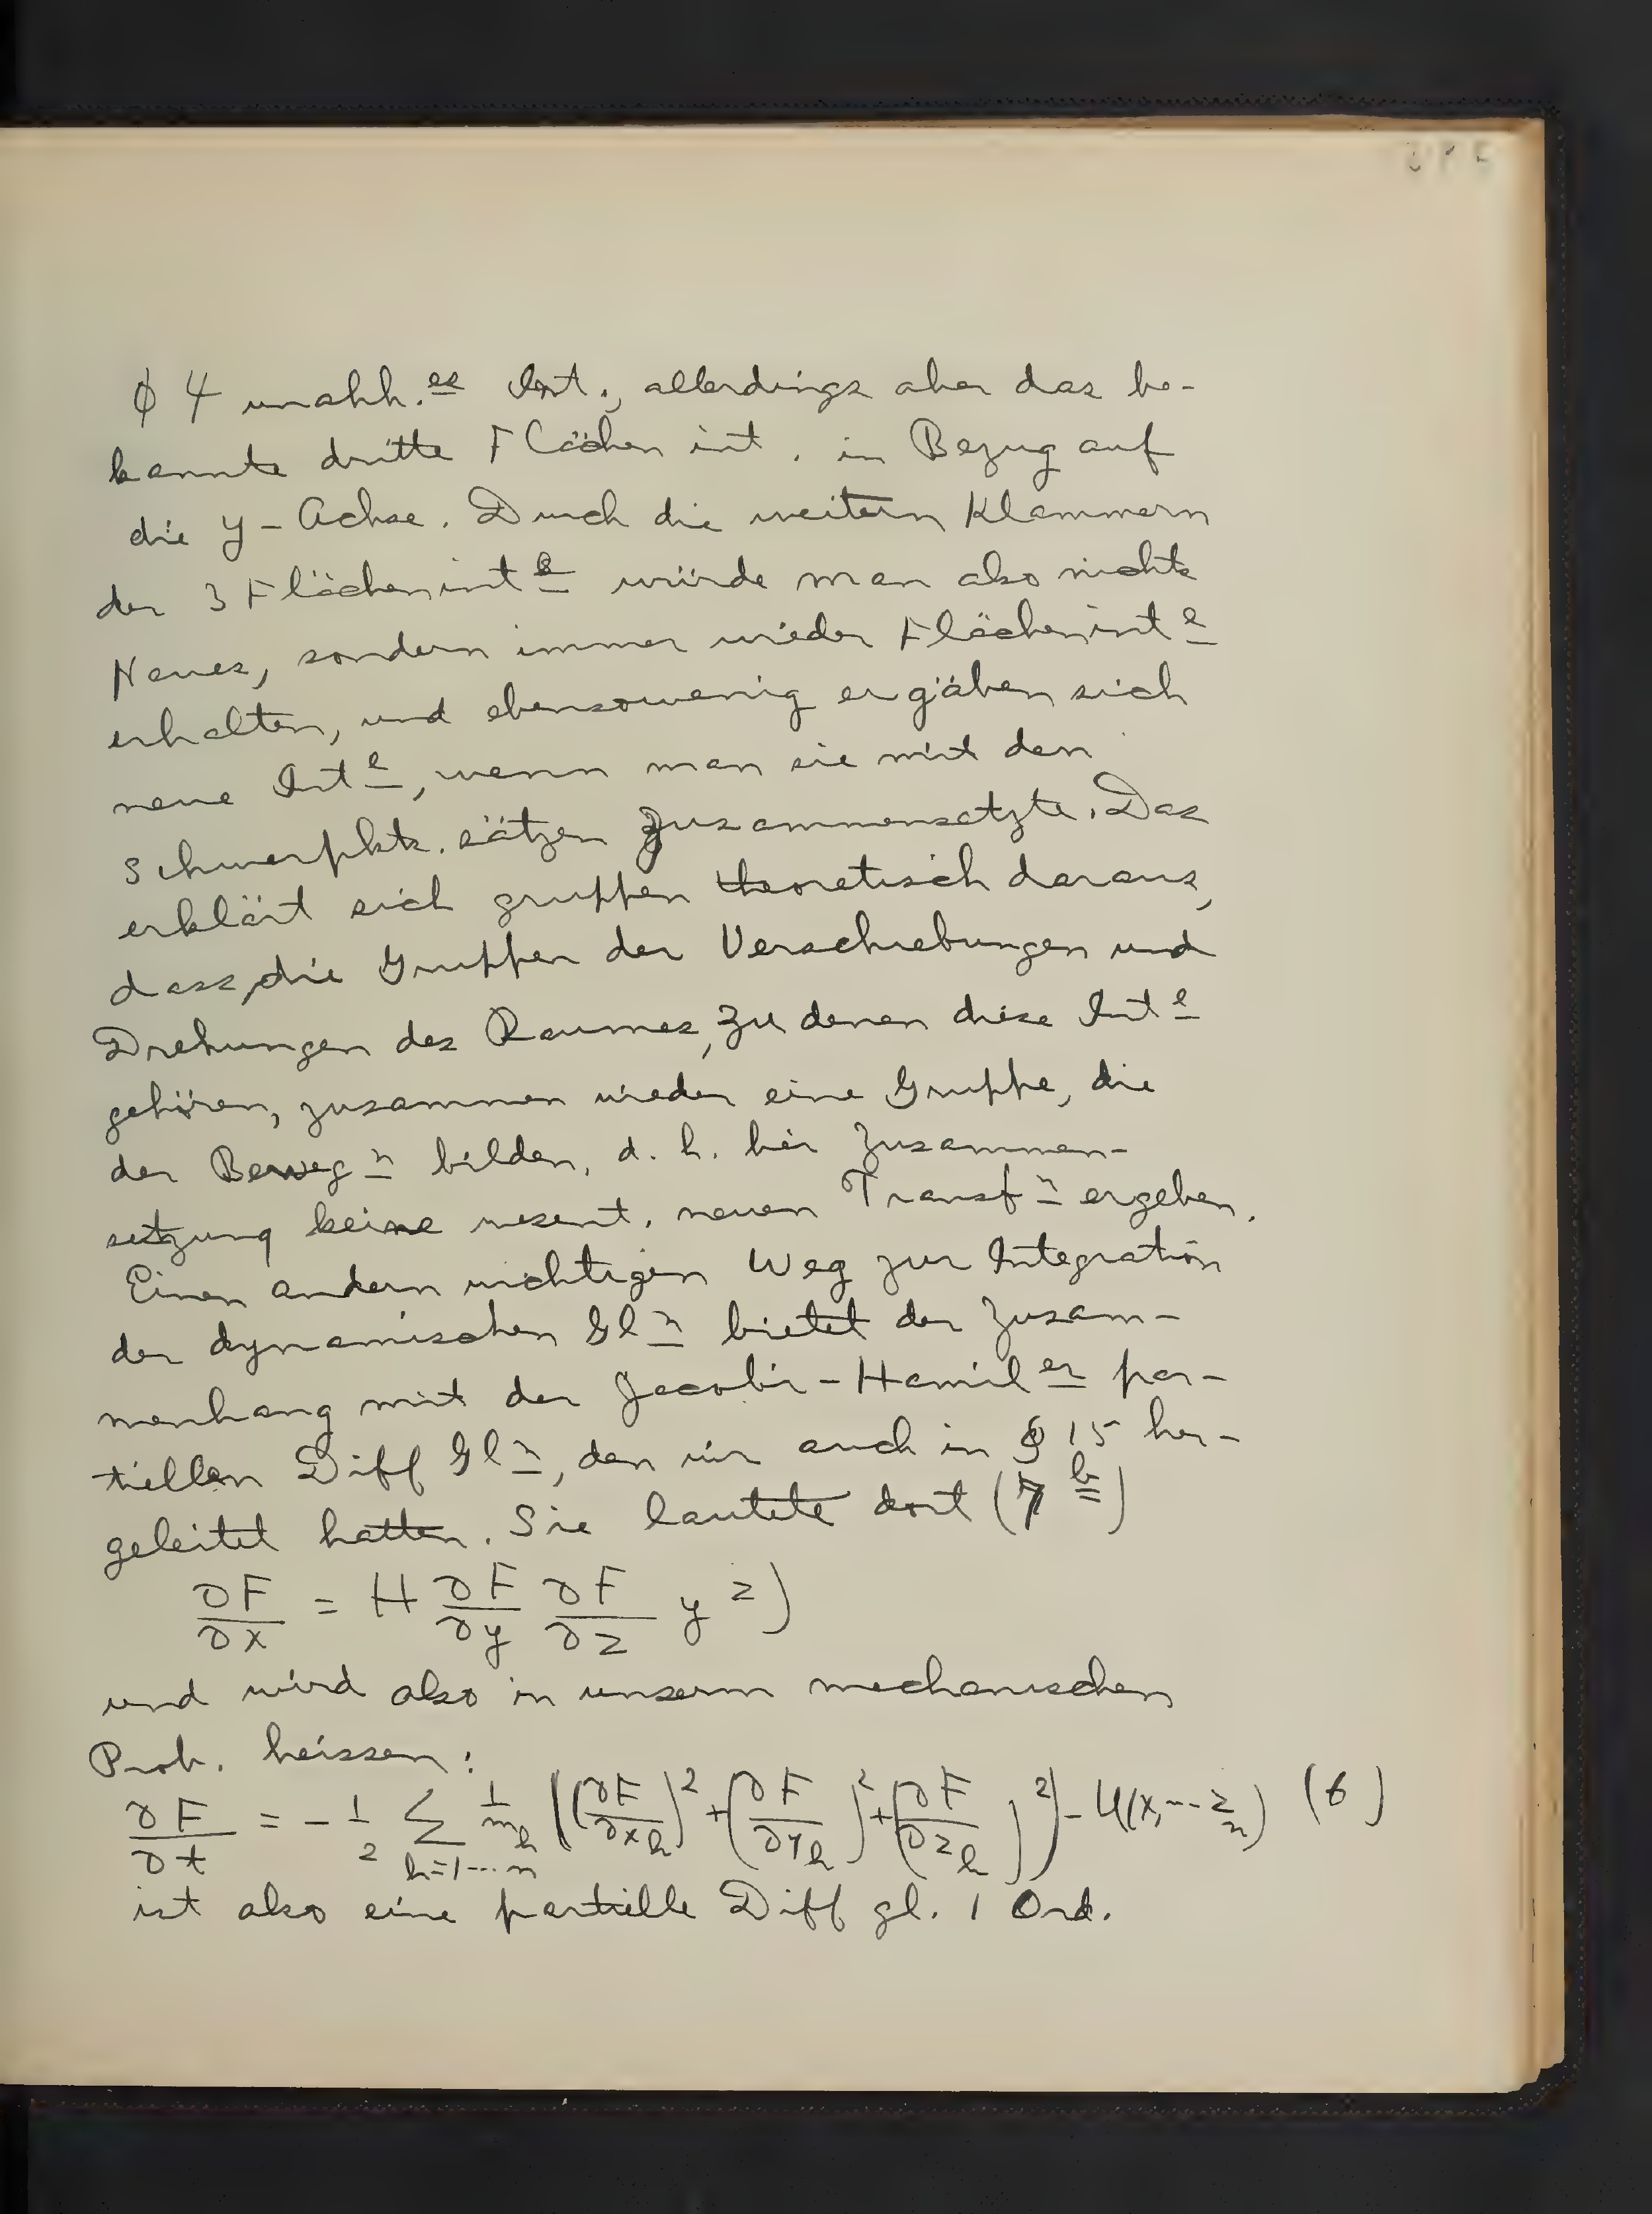 φ 4 unabh.es Int., allerdings aber das be-
kannte dritte Flächenint. in Bezug auf
die y-Achse. Durch die weitern Klammern
der 3 Flächenint e würde man also nichts
Neues, sondern immer wieder Flächenint e
erhalten, und ebensowenig ergäben sich
neue Int e, wenn man sie mit den
Schwerpkts.sätzen zusammensetzte. Das
erklärt sich gruppentheoretisch daraus,
dass, die Gruppen der Verschiebungen und
Drehungen des Raumes, zu denen diese Int e
gehören, zusammen wieder eine Gruppe, die
der Beweg n bilden, d. h. bei Zusammen-
setzung keine wesent. neuen Transf n ergeben.
Einen andern wichtigen Weg zur Integration
der dynamischen Gl n bietet der Zusam-
menhang mit der Jacobi-Hamil er par-
tiellen Diff Gl n, den wir auch in § 15 her-
geleitet hatten. Sie lautete dort (7 b)
∂F/∂x = H ∂F/∂y ∂F/∂z y z)
und wird also in unserm mechanischen
Prob. heissen:
∂F/∂t = - 1/2 Σ h=1...n 1/m_h ((∂F/∂x_h)² + (∂F/∂y_h)² + (∂F/∂z_h)²) - U(x, ... z_n) (6)
ist also eine partielle Diff gl. 1 Ord.